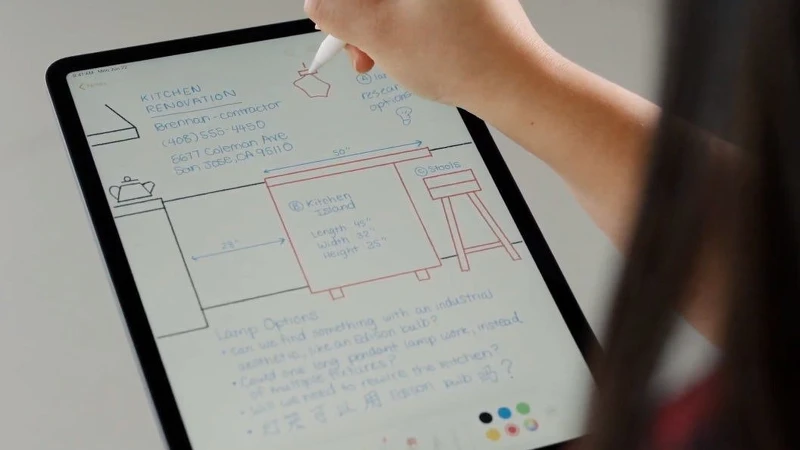 KITCHEN
RENOVATION
Brennan-contractor
(408) 555-4450
5677 Coleman Ave
San Jose, CA 95110
A
options
50"
B Kitchen
Island
Length 45"
Width 32"
Height 35"
C Stools
Lamp Options
• Can we find something with an industrial
aesthetic, like an Edison bulb?
• Could one long pendant lamp work, instead
of multiple fixtures?
• Will we need to rewire the kitchen?
• 可以用 Edison bulb 吗?